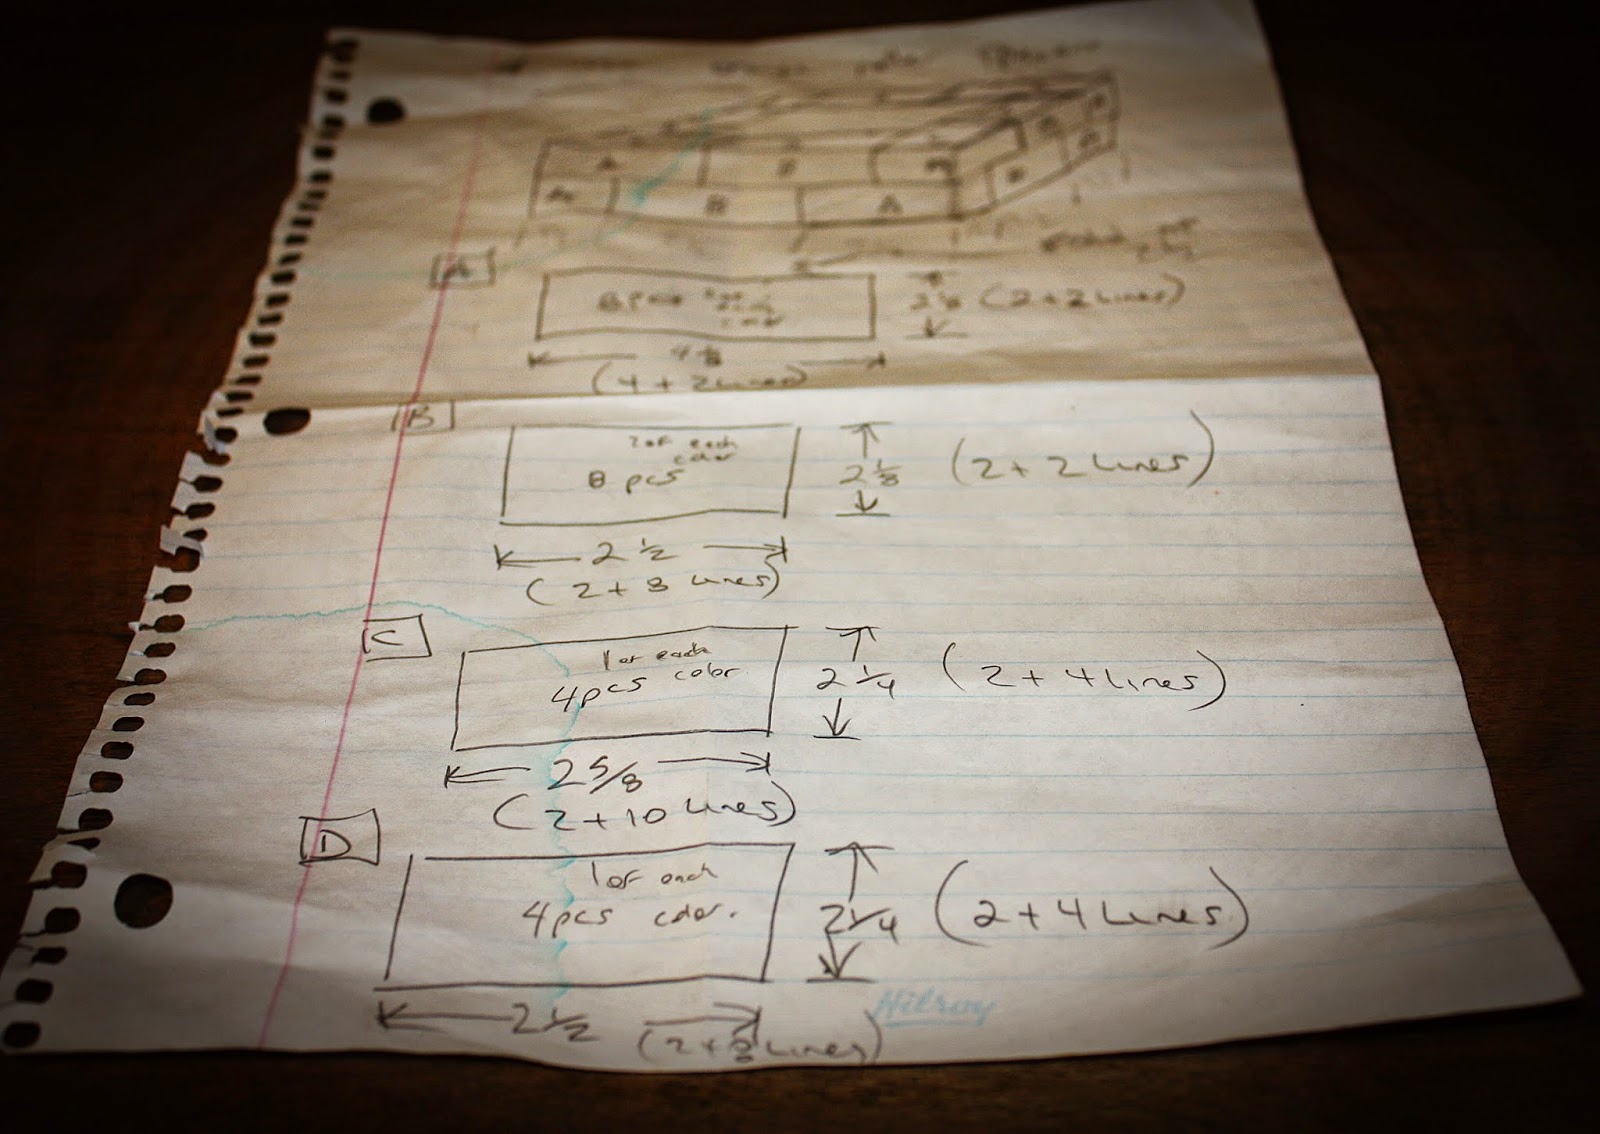 A B
A B A
A
8 pcs
2 1/8 (2 + 2 Lines)
4 1/8
(4 + 2 Lines)
B
2 of each
color
8 pcs
2 1/8 (2 + 2 Lines)
2 1/2
(2 + 8 Lines)
C
1 of each
4pcs color
2 1/4 (2 + 4 Lines)
2 5/8
(2 + 10 Lines)
D
1 of each
4pcs color.
2 1/4 (2 + 4 Lines)
Hilroy
2 1/2 (2 + 8 Lines)